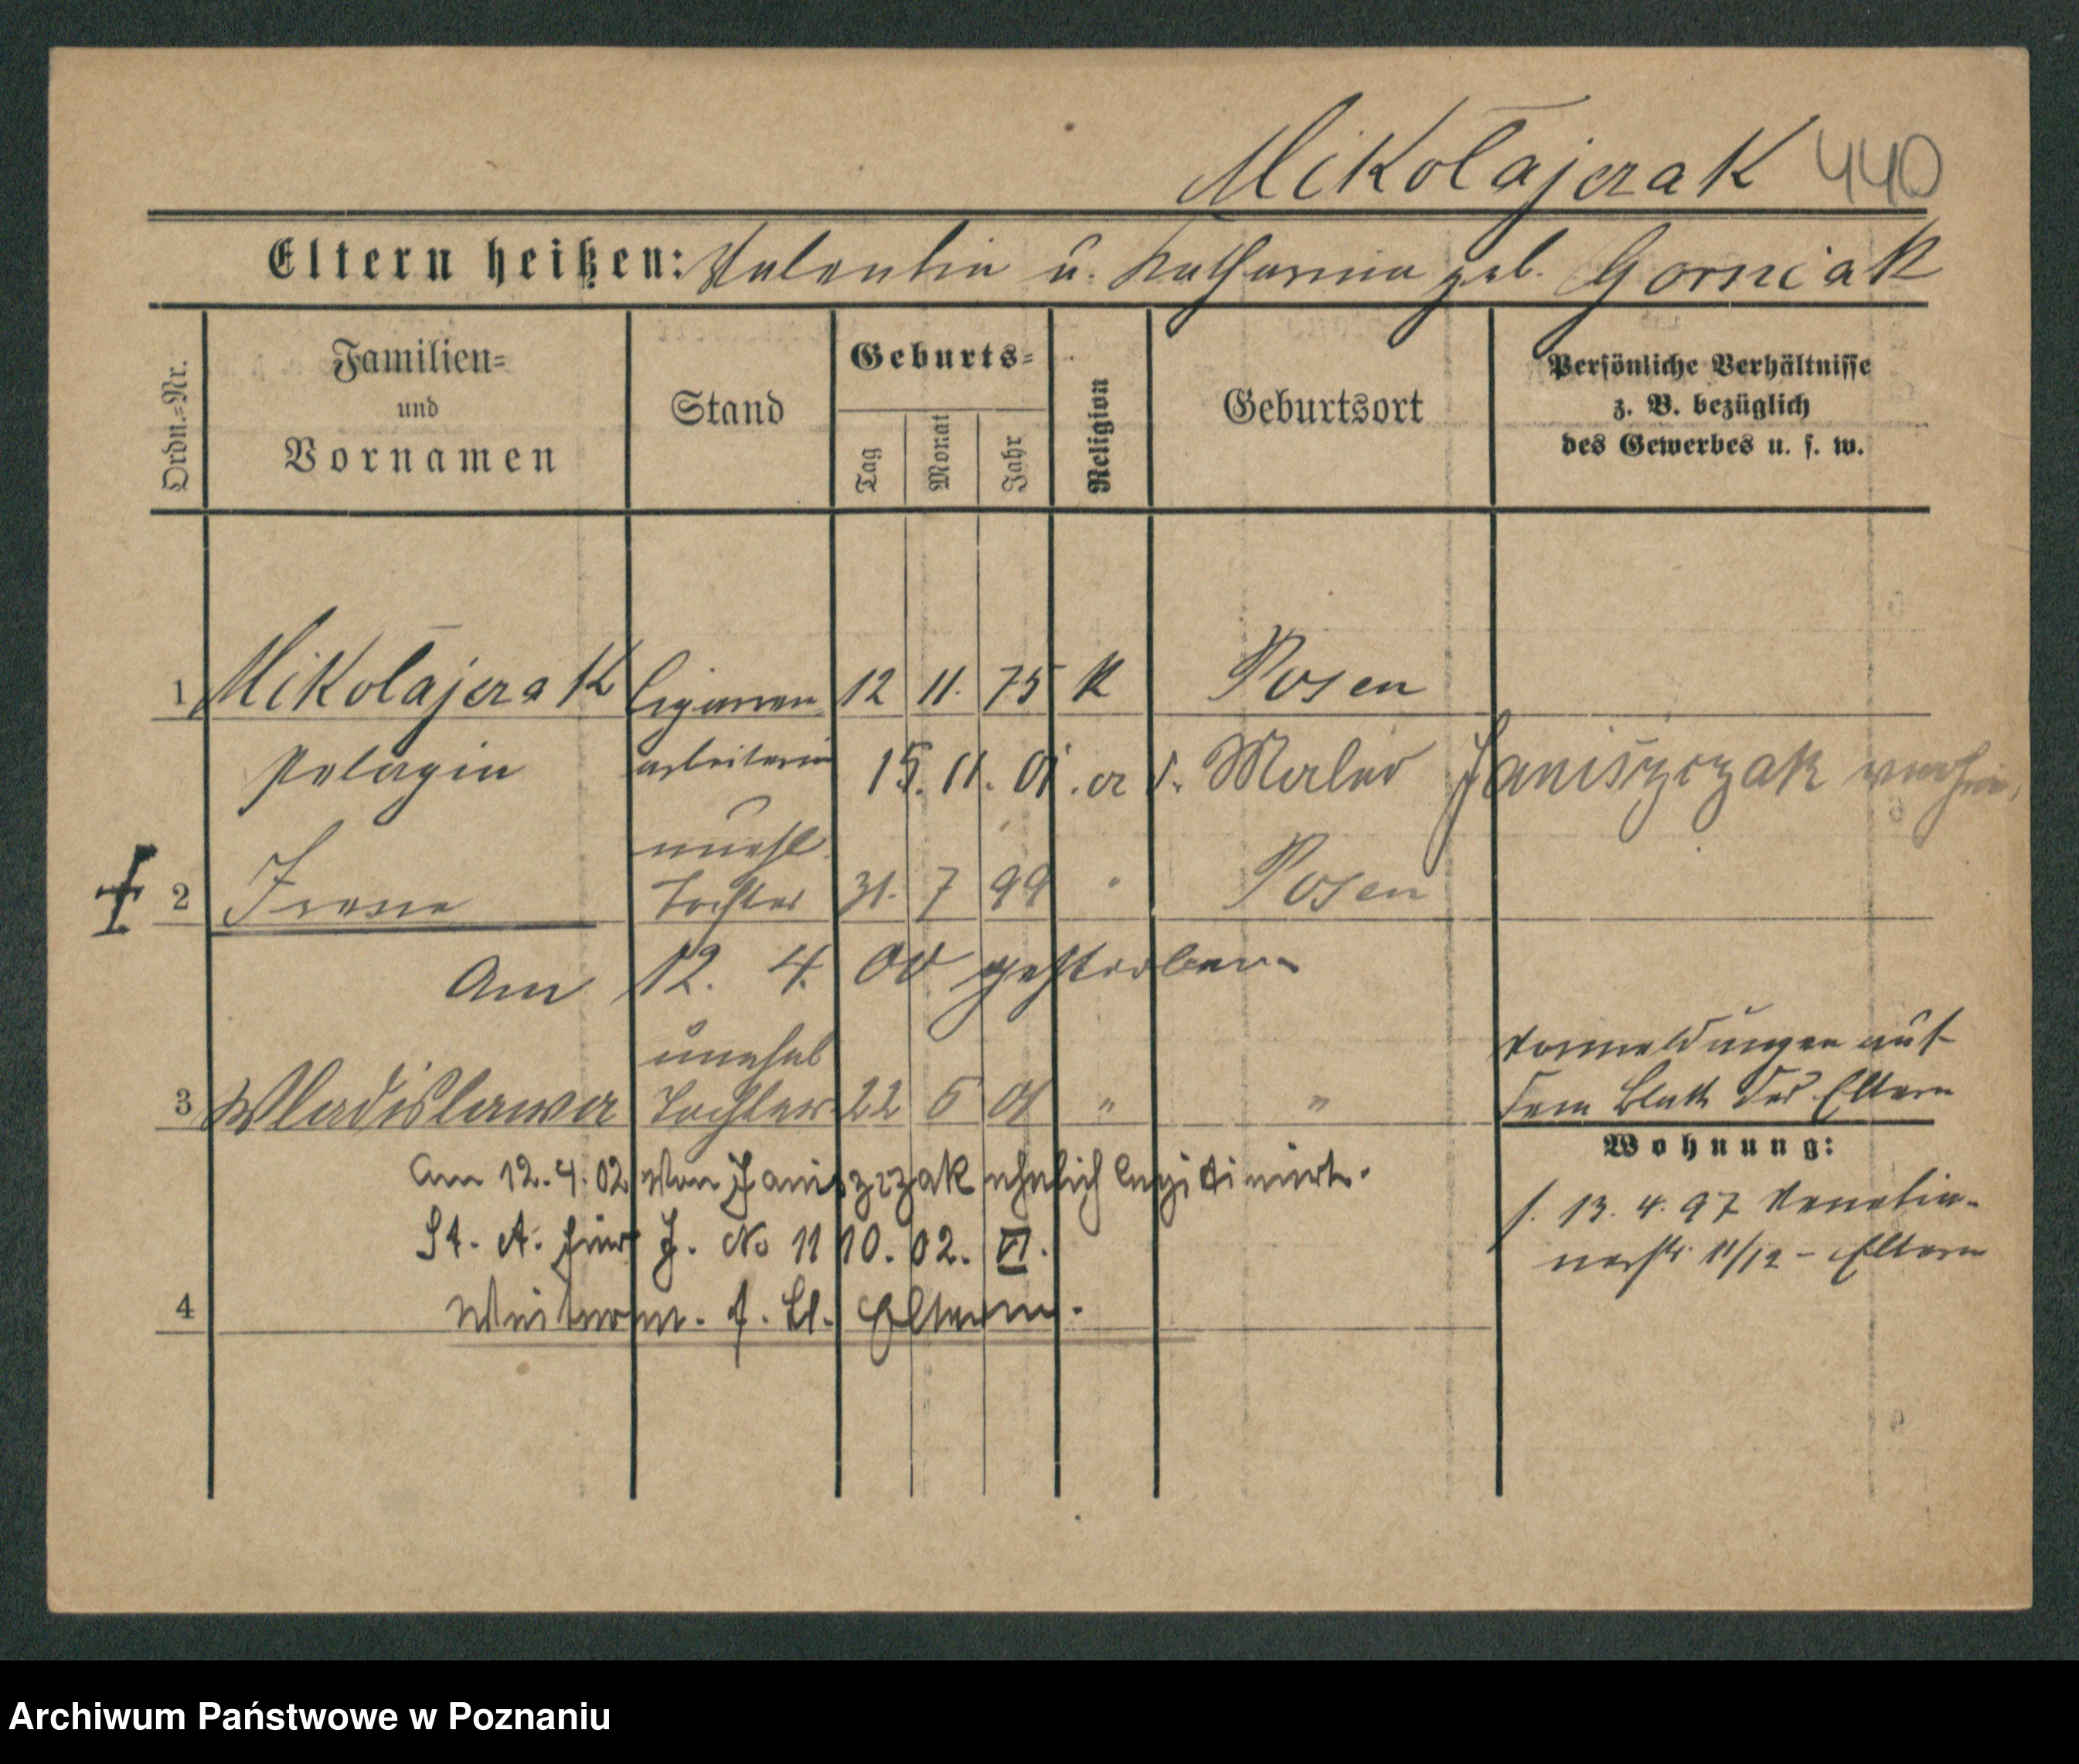 Mikołajczak 440
Eltern heißen: Valentin u. Katharina geb. Gorniak
Ordn.=Nr.
Familien=
und
Vornamen
Stand
Geburts=
Tag
Monat
Jahr
Religion
Geburtsort
Persönliche Verhältnisse
z. B. bezüglich
des Gewerbes u. s. w.
1 Mikołajczak Cigarren 12 11. 75 K Posen
Pelagia arbeiterin 15. 11. 01. a d. Maler Janiszczak verh
unehl.
2 Irene Tochter 31. 7 99 " Posen
Am 12. 4. 00 gestorben
unehel
3 Wladislawa Tochter 22 5 01 " "
Vormeldungen auf
dem Blatt der Eltern
Am 12.4.02 von Janiszczak ehelich legitimirt.
St. A. hier J. No 1110. 02. VI.
4 Weiterm. s. Bl. Eltern.
Wohnung:
s. 13. 4. 97 Venetia-
nerstr. 11/12 - Eltern
Archiwum Państwowe w Poznaniu